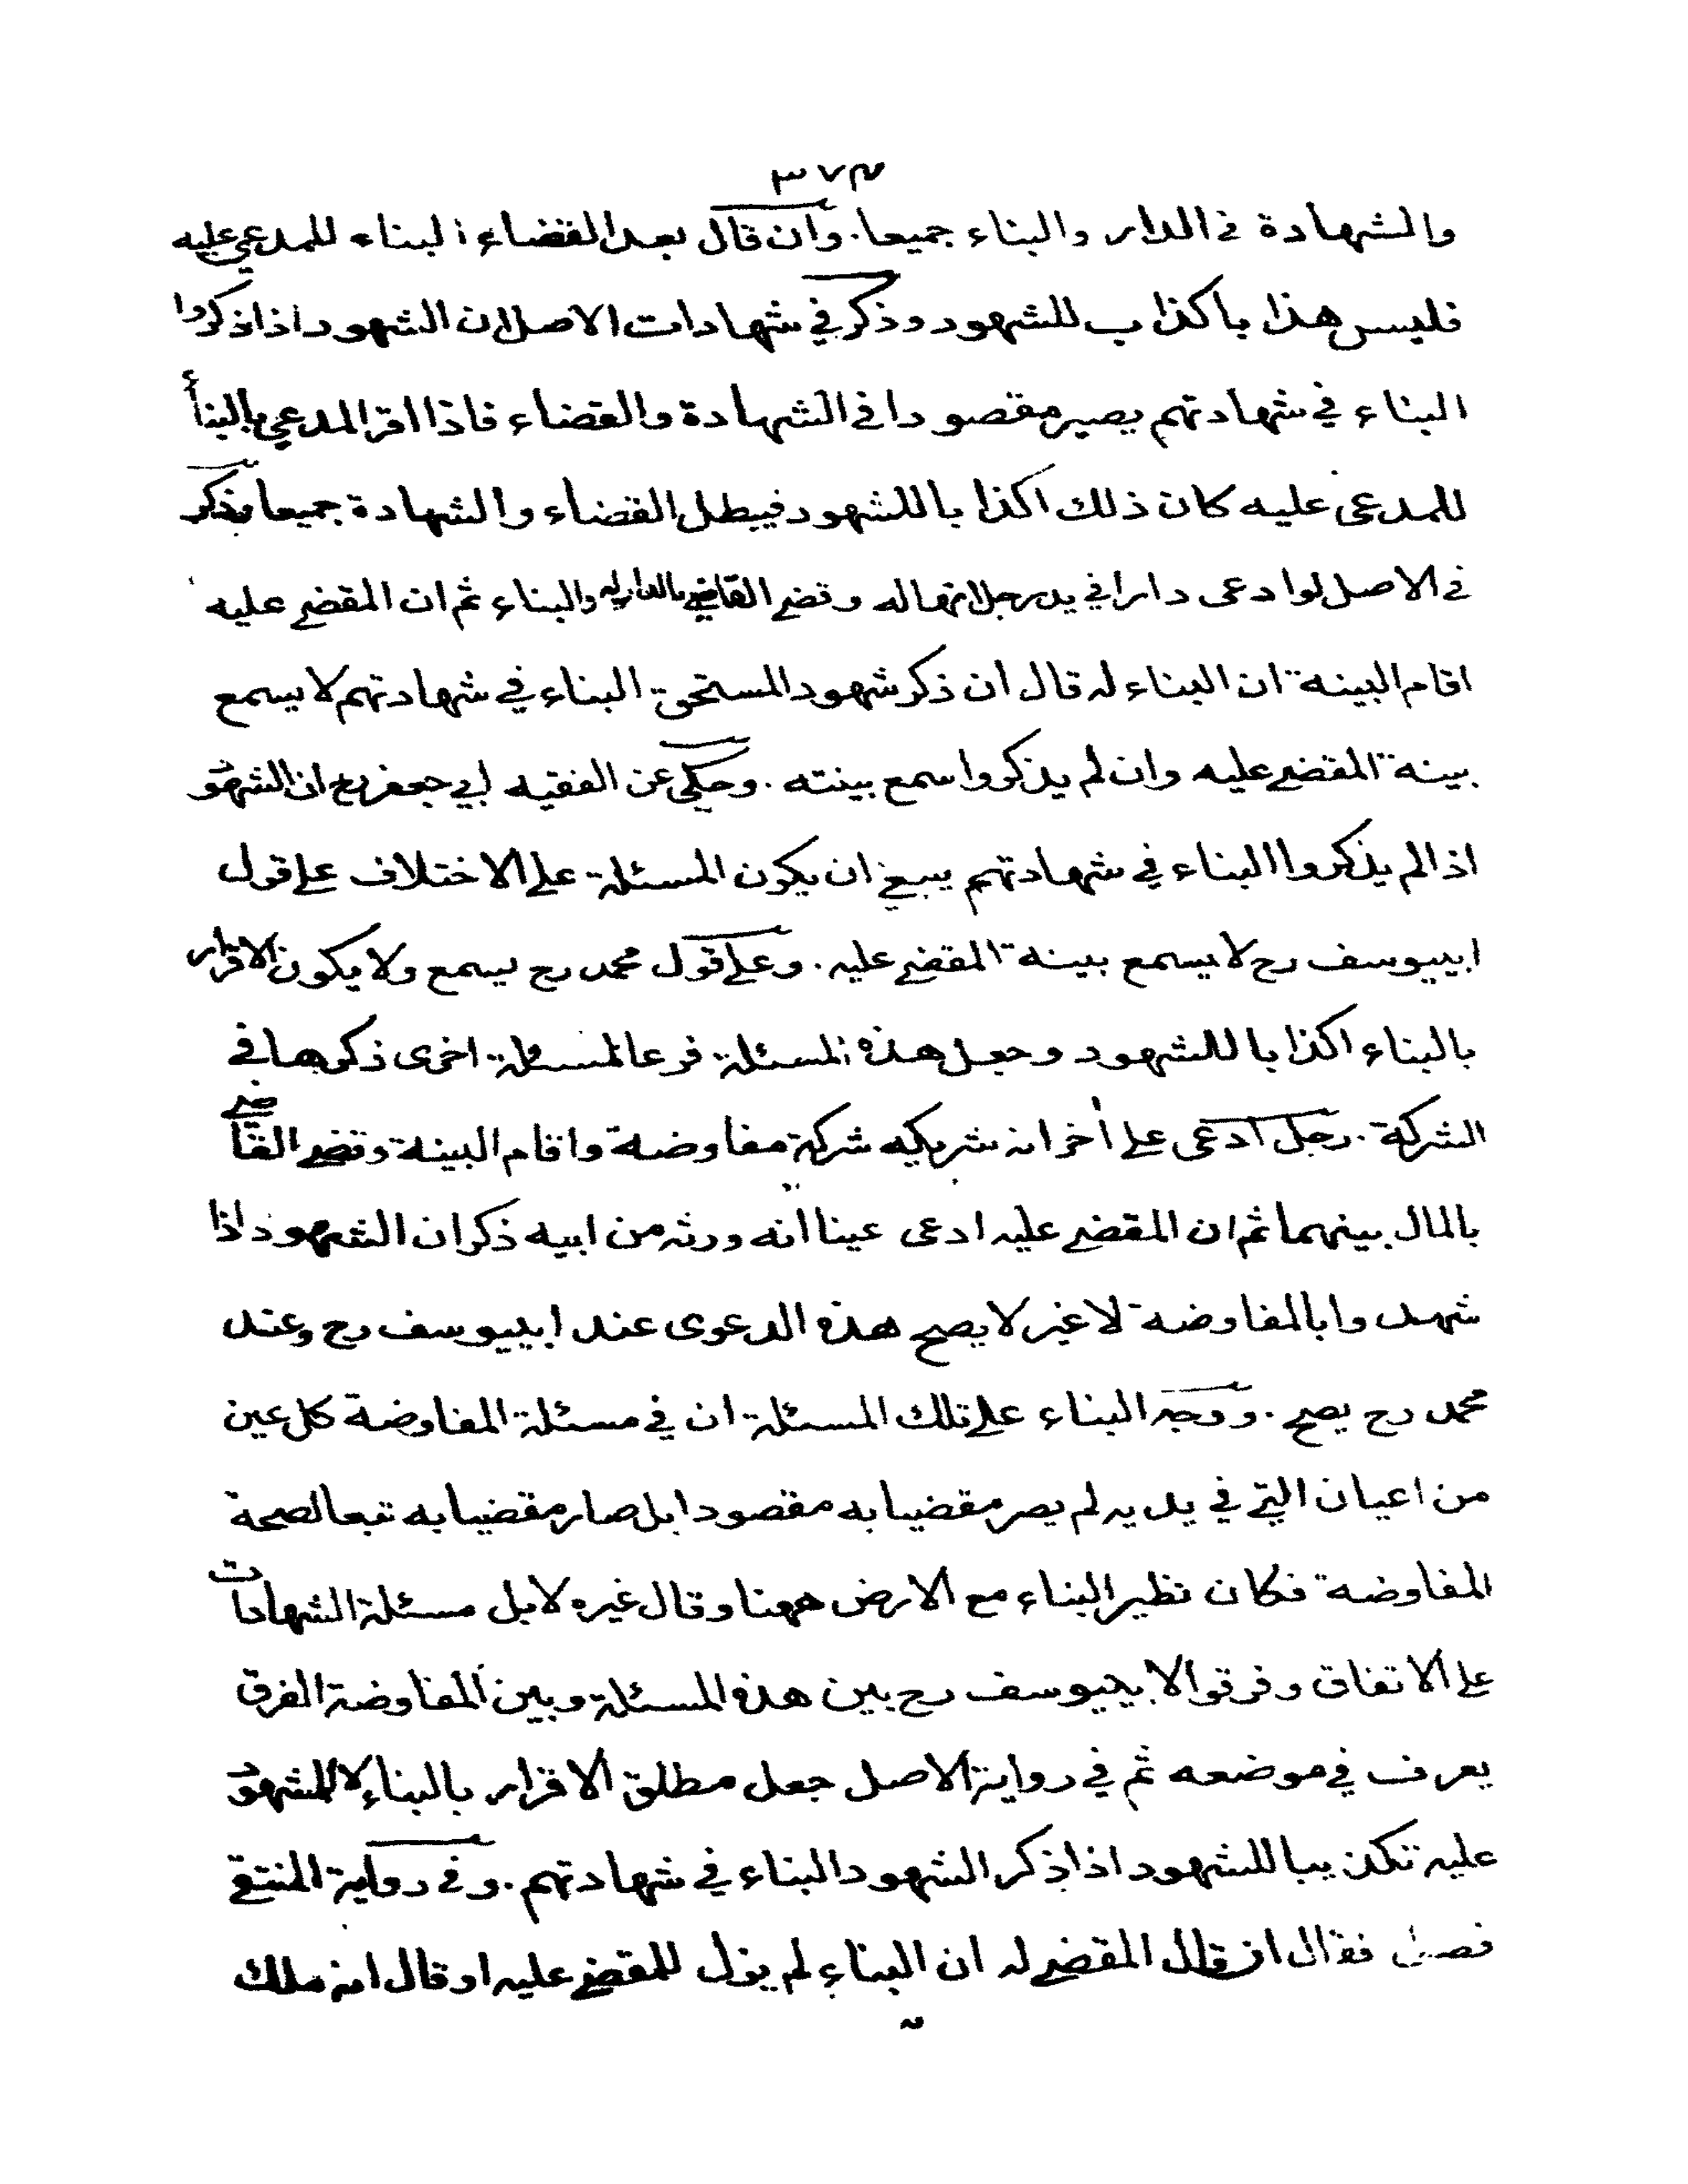 ٣٧٣
والشهادة فى الدار والبناء جميعا. وان قال بعد القضاء البناء للمدعى عليه
فليس هذا باكذاب للشهود وذكر في شهادات الاصل ان الشهود اذا ذكروا
البناء في شهادتهم يصير مقصودا فى الشهادة والقضاء فاذا اقر المدعي بالبناء
للمدعى عليه كان ذلك اكذابا للشهود فيبطل القضاء والشهادة جميعا وذكر
فى الاصل لو ادعى دارا في يد رجل انها له وقضى القاضي بالدار له والبناء ثم ان المقضى عليه
اقام البينة ان البناء له قال ان ذكر شهود المستحق البناء في شهادتهم لا يسمع
بينة المقضى عليه وان لم يذكروا سمع بينته. وحكي عن الفقيه ابي جعفر رح ان الشهود
اذا لم يذكروا البناء في شهادتهم ينبغي ان يكون المسئلة على الاختلاف على قول
ابييوسف رح لا يسمع بينة المقضى عليه. وعلى قول محمد رح يسمع ولا يكون الاقرار
بالبناء اكذابا للشهود وجعل هذه المسئلة فرعا لمسئلة اخرى ذكرها فى
الشركة. رجل ادعى على أخر انه شريكه شركة مفاوضة واقام البينة وقضى القاضى
بالمال بينهما ثم ان المقضى عليه ادعى عينا انه ورثه من ابيه ذكر ان الشهود اذا
شهدوا بالمفاوضة لا غير لا يصح هذه الدعوى عند ابييوسف رح وعند
محمد رح يصح. ووجه البناء على تلك المسئلة ان في مسئلة المفاوضة كل عين
من اعيان التي في يديه لم يصر مقضيا به مقصودا بل صار مقضيا به تبعا لصحة
المفاوضة فكان نظير البناء مع الارض ههنا وقال غيره لا بل مسئلة الشهادات
على الاتفاق وفرقوا لابييوسف رح بين هذه المسئلة وبين المفاوضة الفرق
يعرف في موضعه ثم في رواية الاصل جعل مطلق الاقرار بالبناء للمشهود
عليه تكذيبا للشهود اذا ذكر الشهود البناء في شهادتهم. وفى رواية المنتقى
فصل فقال ان قال المقضى له ان البناء لم يزل للمقضى عليه او قال انه ملك